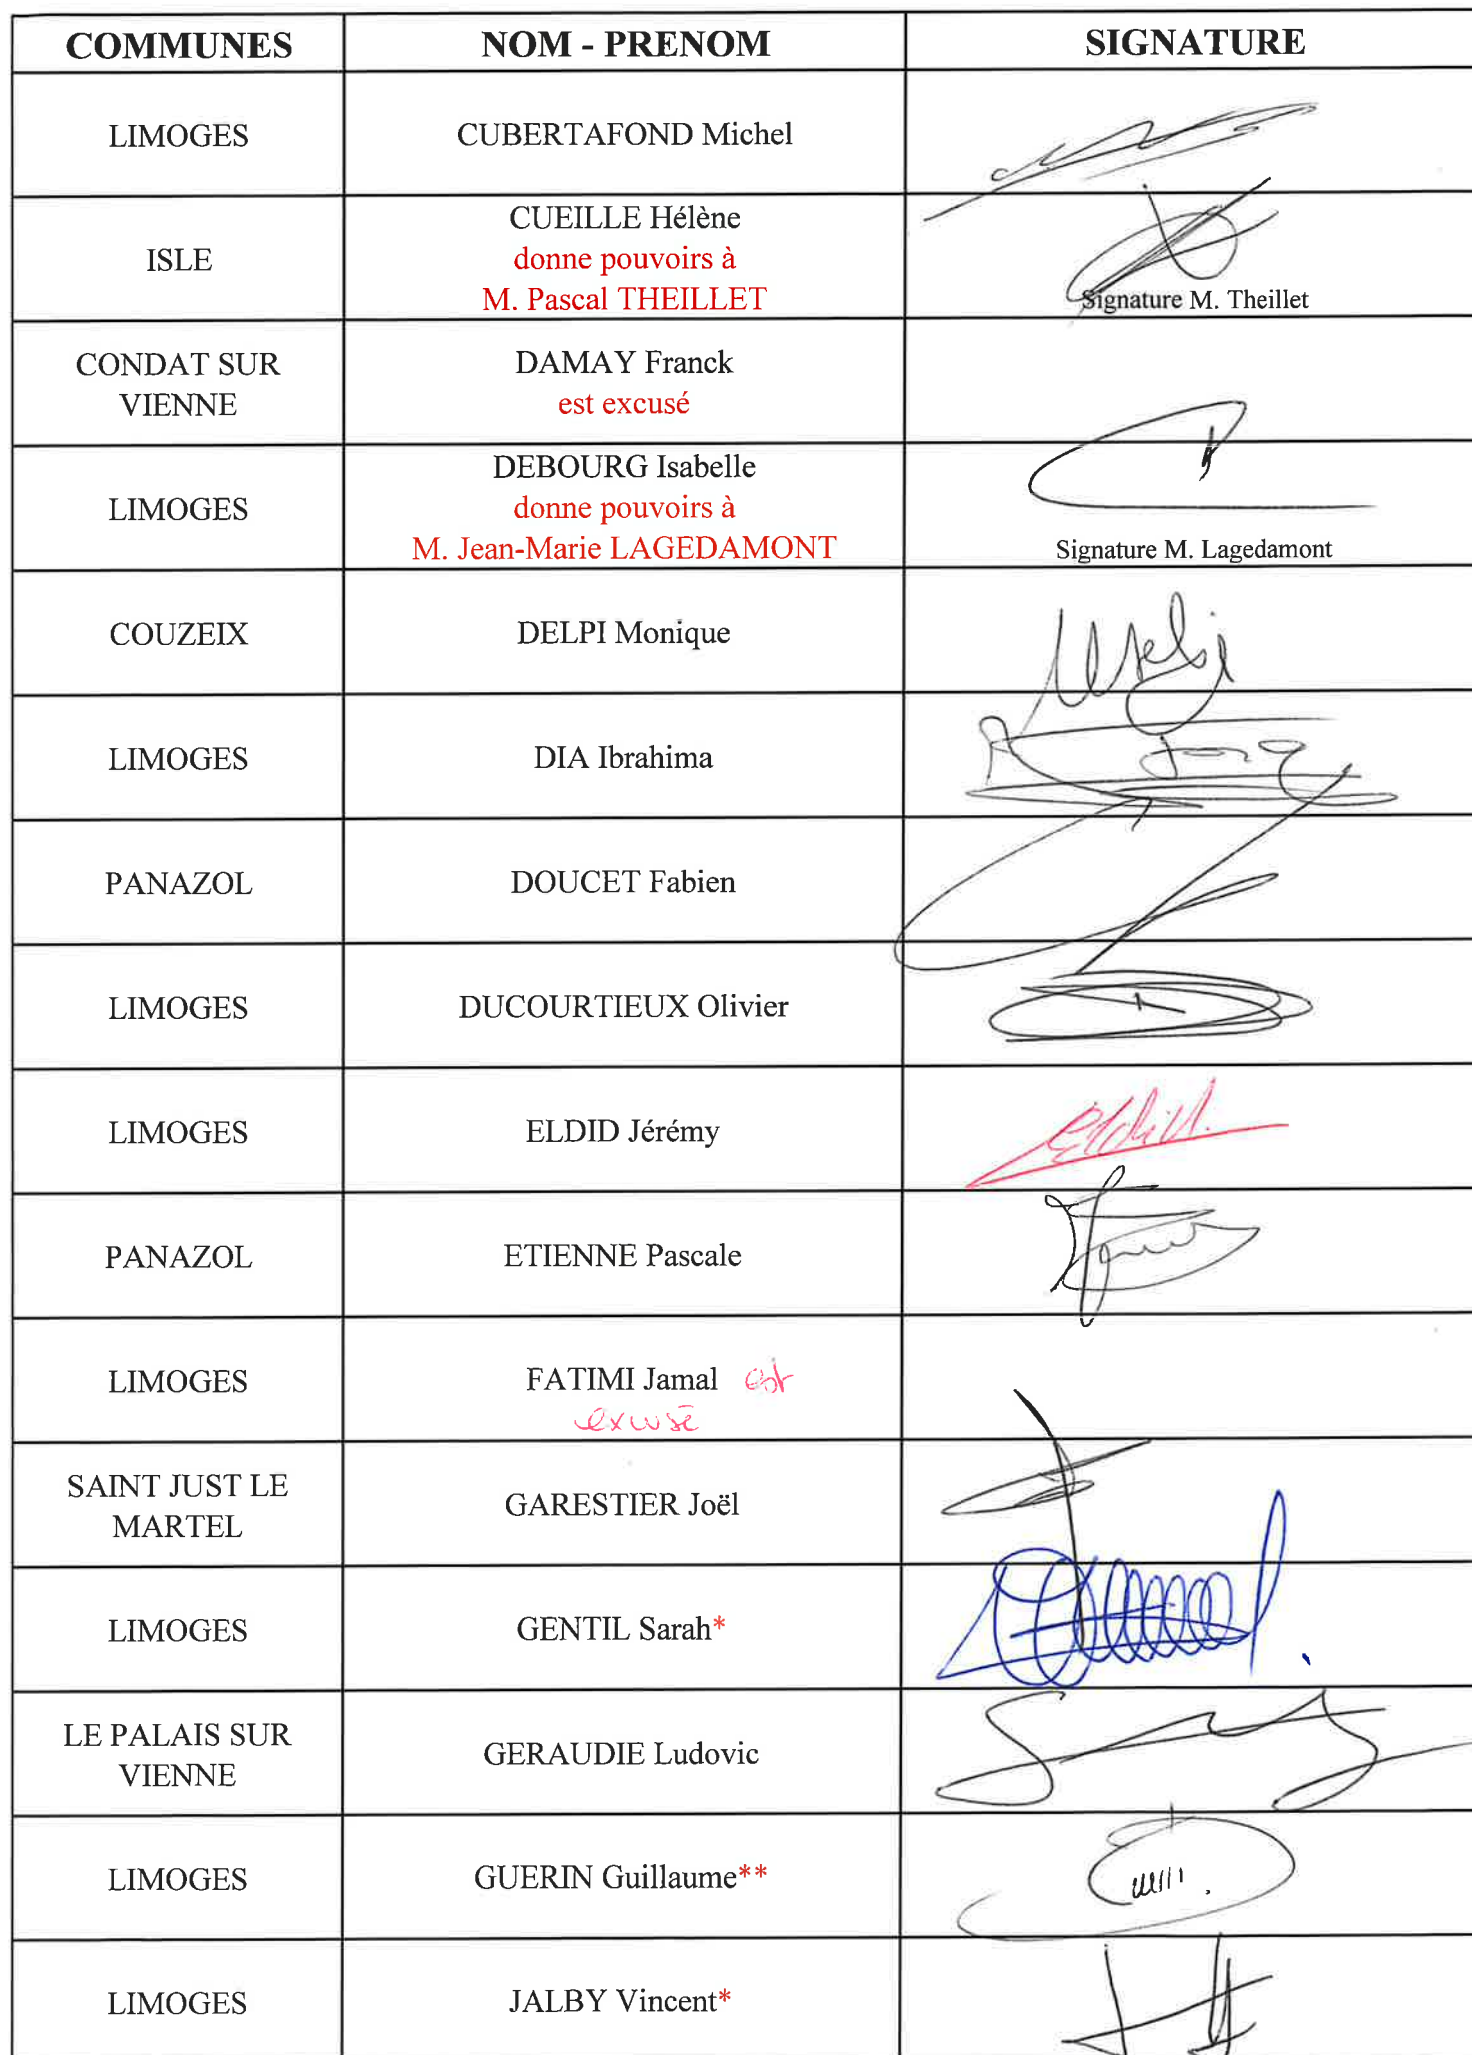 COMMUNES
NOM - PRENOM
SIGNATURE
LIMOGES
CUBERTAFOND Michel
ISLE
CUEILLE Hélène
donne pouvoirs à
M. Pascal THEILLET
Signature M. Theillet
CONDAT SUR
VIENNE
DAMAY Franck
est excusé
LIMOGES
DEBOURG Isabelle
donne pouvoirs à
M. Jean-Marie LAGEDAMONT
Signature M. Lagedamont
COUZEIX
DELPI Monique
LIMOGES
DIA Ibrahima
PANAZOL
DOUCET Fabien
LIMOGES
DUCOURTIEUX Olivier
LIMOGES
ELDID Jérémy
PANAZOL
ETIENNE Pascale
LIMOGES
FATIMI Jamal est
excusé
SAINT JUST LE
MARTEL
GARESTIER Joël
LIMOGES
GENTIL Sarah*
LE PALAIS SUR
VIENNE
GERAUDIE Ludovic
LIMOGES
GUERIN Guillaume**
LIMOGES
JALBY Vincent*